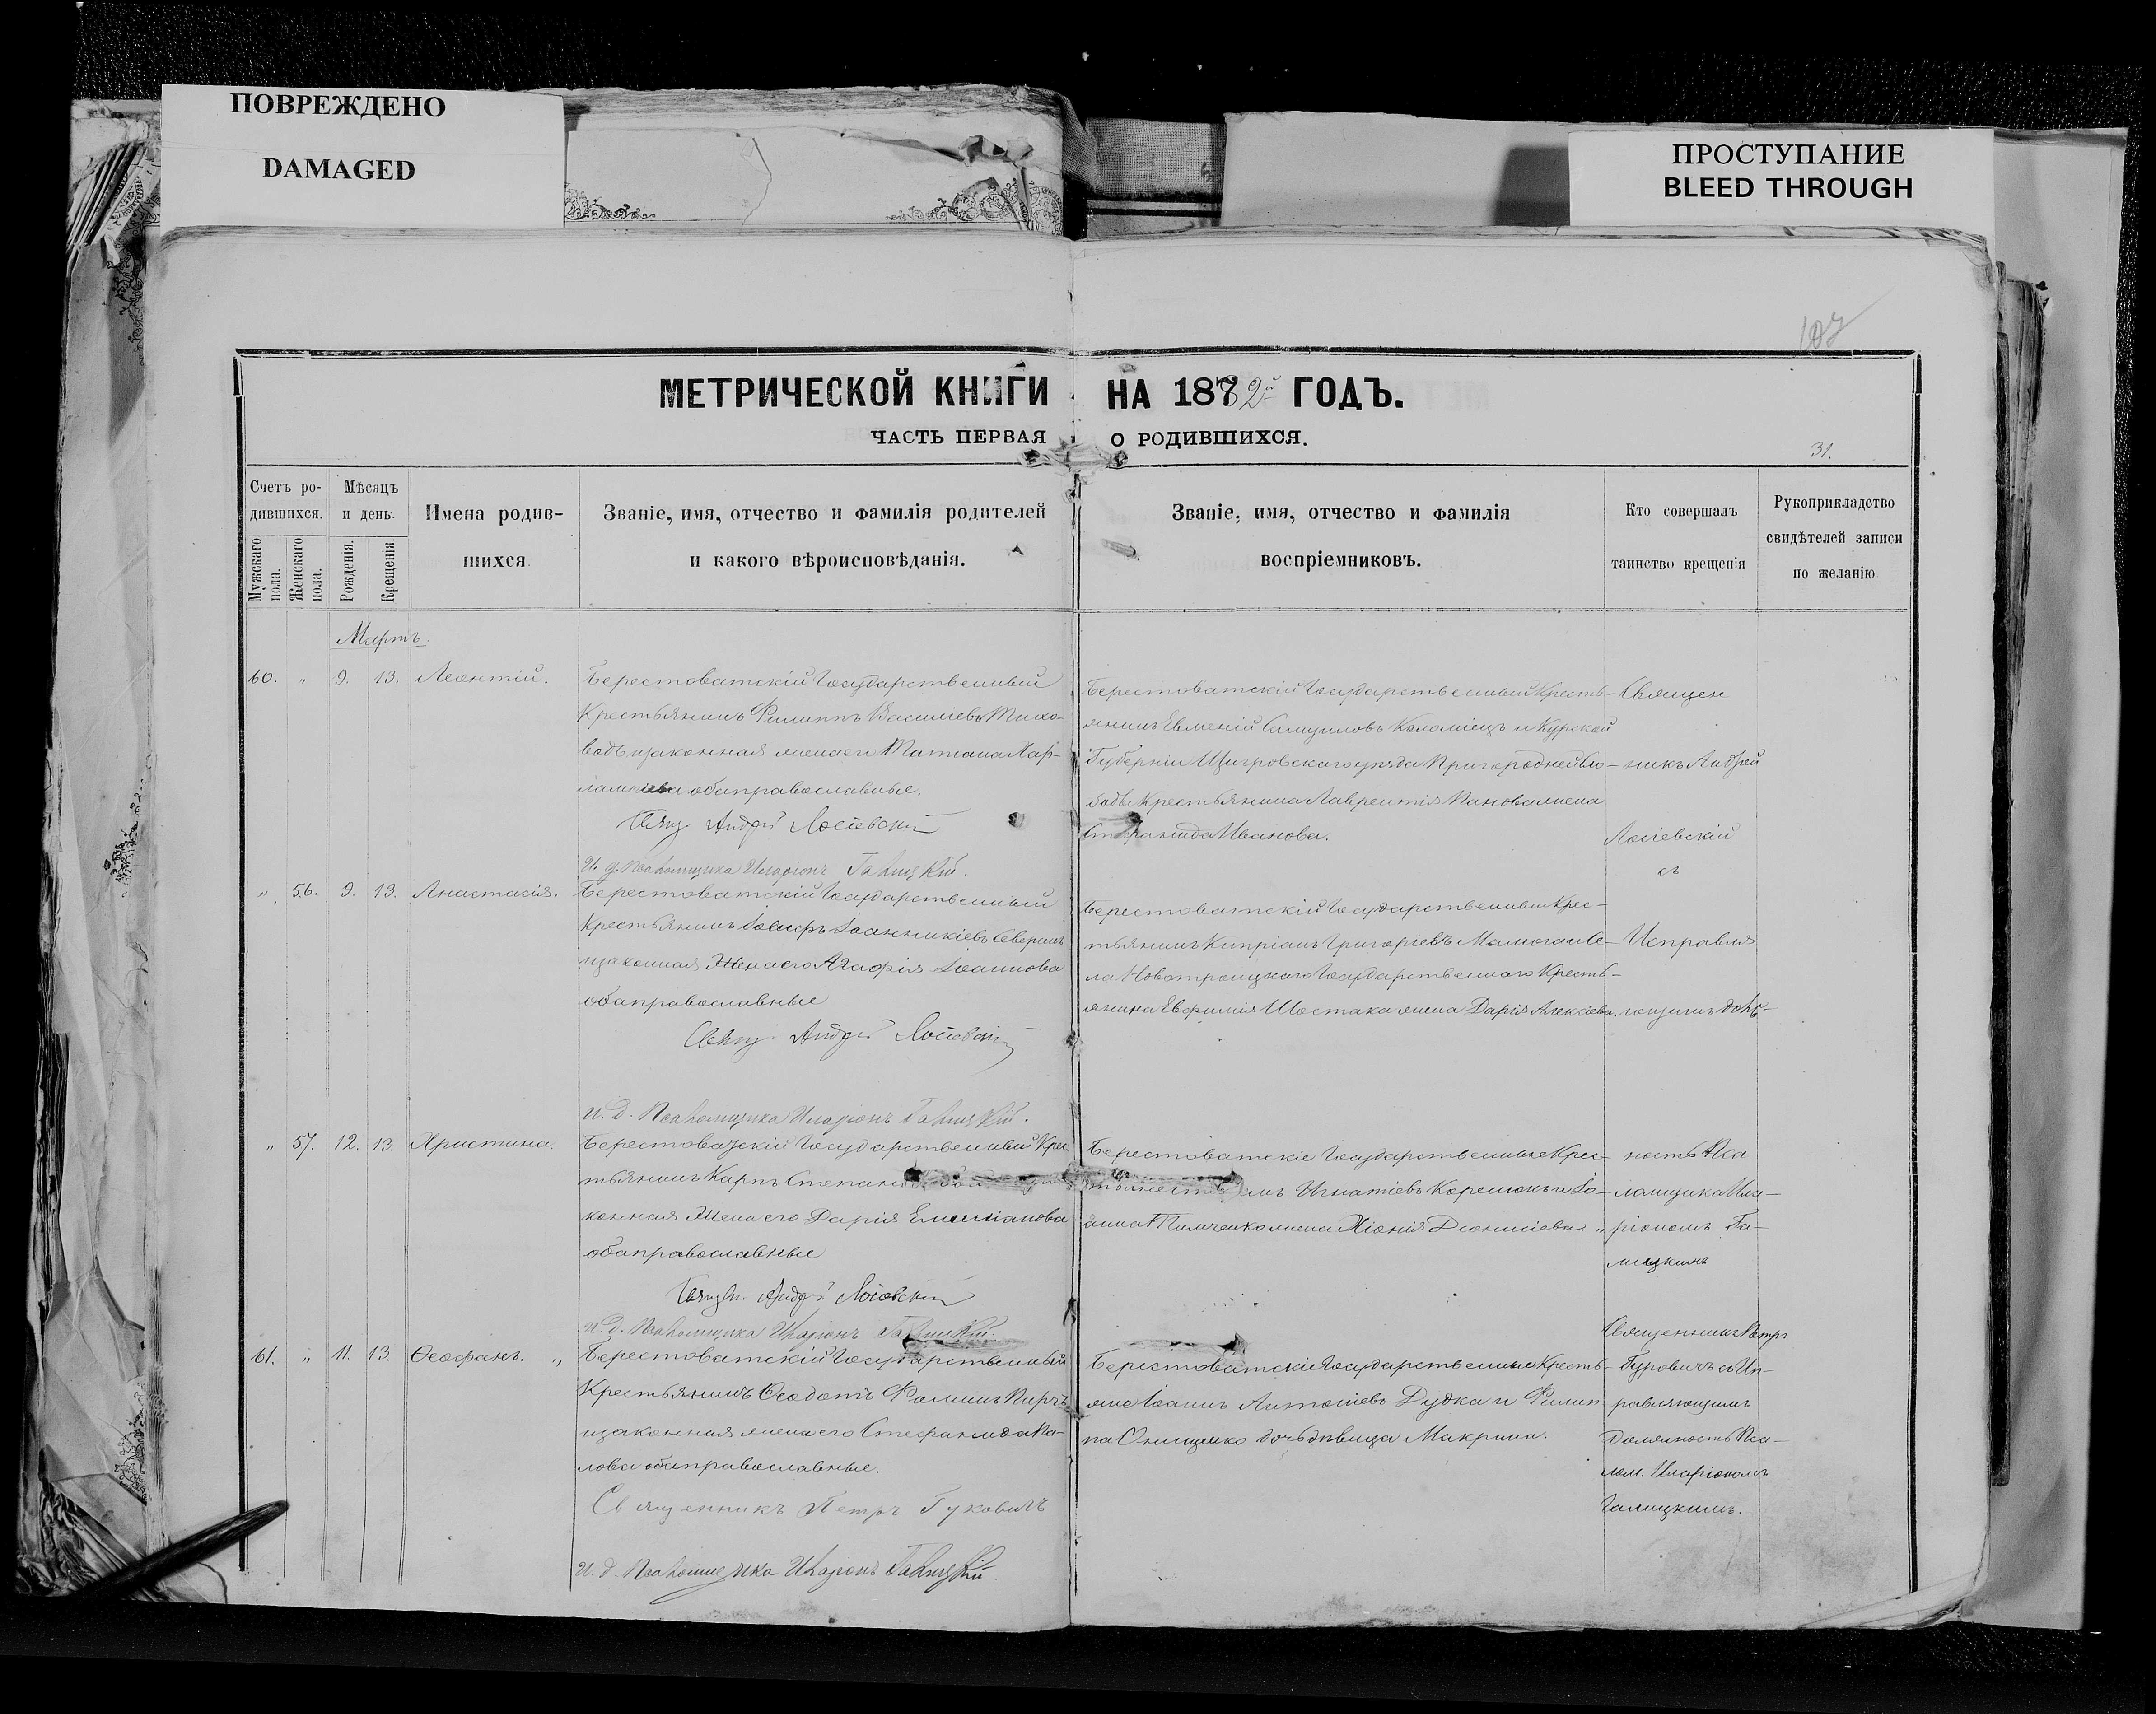 ПОВРЕЖДЕНО
DAMAGED
ПРОСТУПАНИЕ
BLEED THROUGH
107
МЕТРИЧЕСКОЙ КНИГИ НА 1882й ГОДЪ.
ЧАСТЬ ПЕРВАЯ О РОДИВШИХСЯ.
31.
Счетъ ро-
дившихся.
Мужскаго пола.
Женскаго пола.
Мѣсяцъ
и день.
Рожденія.
Крещенія.
Имена родив-
шихся.
Званіе, имя, отчество и фамилія родителей
и какого вѣроисповѣданія.
Званіе, имя, отчество и фамилія
воспріемниковъ.
Кто совершалъ
таинство крещенія
Рукоприкладство
свидѣтелей записи
по желанію
Мартъ.
60. " 9. 13. Леонтій.
Берестоватскій Государственный
Крестьянинъ Филиппъ Василіевъ Тихо-
водъ и законная жена его Татіана Хар-
лампіева оба православные.
Свящ. Андрей Лосіевскій
И. д. Псаломщика Иларіонъ Галицкій.
Берестоватскій Государственный Кресть-
янинъ Евменій Коломіецъ и Курской
Губерніи Щигровскаго уѣзда Пригородней Сло-
боды Крестьянина Лаврентія Панова жена
Стефанида Иванова.
Священ
никъ Андрей
Лосіевскій
съ
" 56. 9. 13. Анастасія.
Берестоватскій Государственный
Крестьянинъ Іосифъ Іоанникіевъ
и законная Жена его Агафія Іоаннова
оба православные
Свящ. Андрей Лосіевскій
И. д. Псаломщика Иларіонъ Галицкій.
Берестоватскій Государственный Крес-
тьянинъ Кипріанъ Григоріевъ и Се-
ла Новотроицкаго Государственнаго Кресть-
янина Евфимія Шостака жена Дарія Алексіева.
Исправля
ющимъ долж-
" 57. 12. 13. Христина.
Берестоватскій Государственный Крес
тьянинъ Карпъ Степановъ
конная Жена его Дарія Емиліанова
оба православные
Священ. Андрей Лосіевскій
И. д. Псаломщика Иларіонъ Галицкій.
Берестоватскіе Государственные Крес-
Игнатіевъ и Іо-
анна жена Хіонія Діонисіева "
ность Пса
ломщика Ила-
ріономъ Га-
лицкимъ
61. " 11. 13. Ѳеофанъ. "
Берестоватскій Государственный
Крестьянинъ Ѳеодотъ Фоминъ
и законная жена его Стефанида Па-
лова оба православные.
Священникъ Петръ Гуковичъ
И. д. Псаломщика Иларіонъ Галицкій.
Берестоватскіе Государственные Кресть-
яне Іоаннъ Антоніевъ Дудка и Филип
па Онищенко дочь дѣвица Макрина.
Священникъ Петръ
Гуковичъ съ Ис-
равляющимъ
Должность Пса-
лом. Иларіономъ
Галицкимъ.